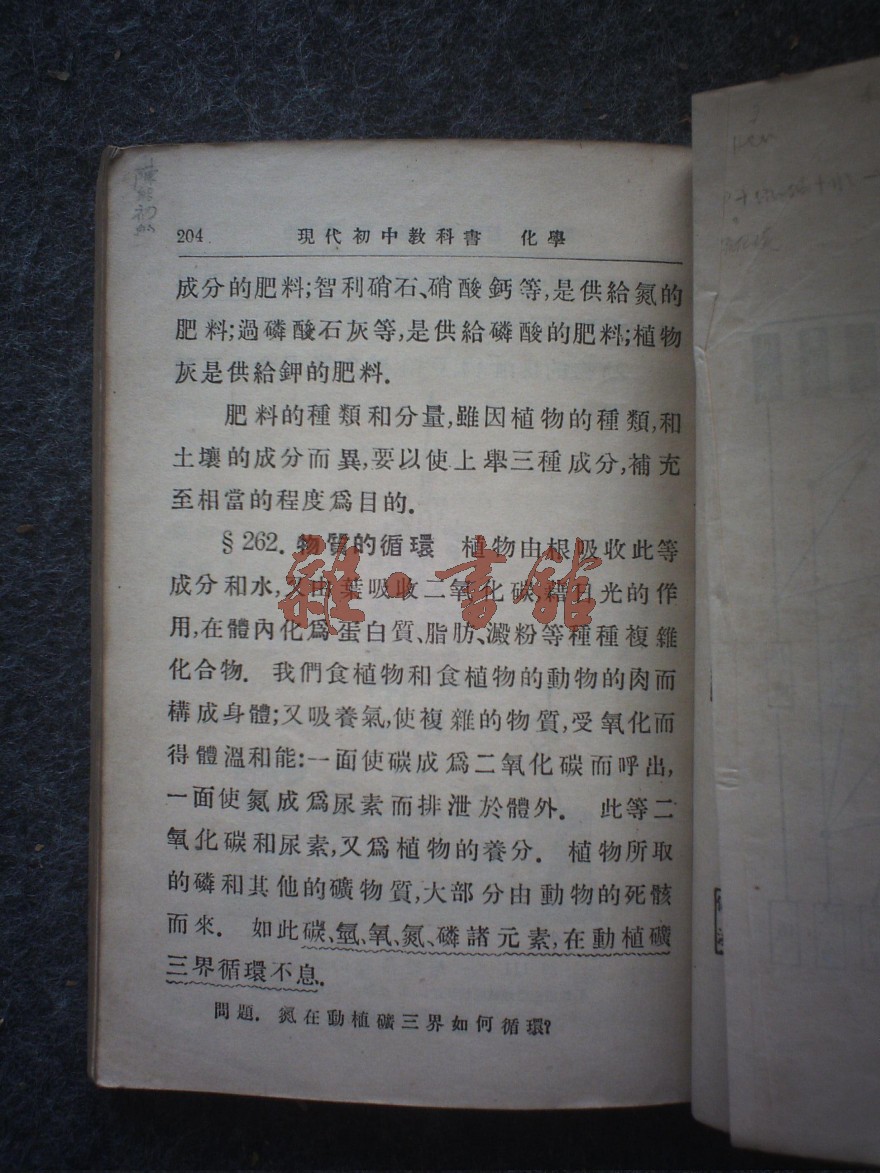 204
現代初中教科書 化學
成分的肥料;智利硝石、硝酸鈣等,是供給氮的
肥料;過磷酸石灰等,是供給磷酸的肥料;植物
灰是供給鉀的肥料.
肥料的種類和分量,雖因植物的種類,和
土壤的成分而異,要以使上舉三種成分,補充
至相當的程度爲目的.
§262.物質的循環 植物由根吸收此等
成分和水,又由葉吸收二氧化碳,藉日光的作
用,在體內化爲蛋白質、脂肪、澱粉等種種複雜
化合物. 我們食植物和食植物的動物的肉而
構成身體;又吸養氣,使複雜的物質,受氧化而
得體溫和能:一面使碳成爲二氧化碳而呼出,
一面使氮成爲尿素而排泄於體外. 此等二
氧化碳和尿素,又爲植物的養分. 植物所取
的磷和其他的礦物質,大部分由動物的死骸
而來. 如此碳、氫、氧、氮、磷諸元素,在動植礦
三界循環不息.
問題. 氮在動植礦三界如何循環?
雜·書館